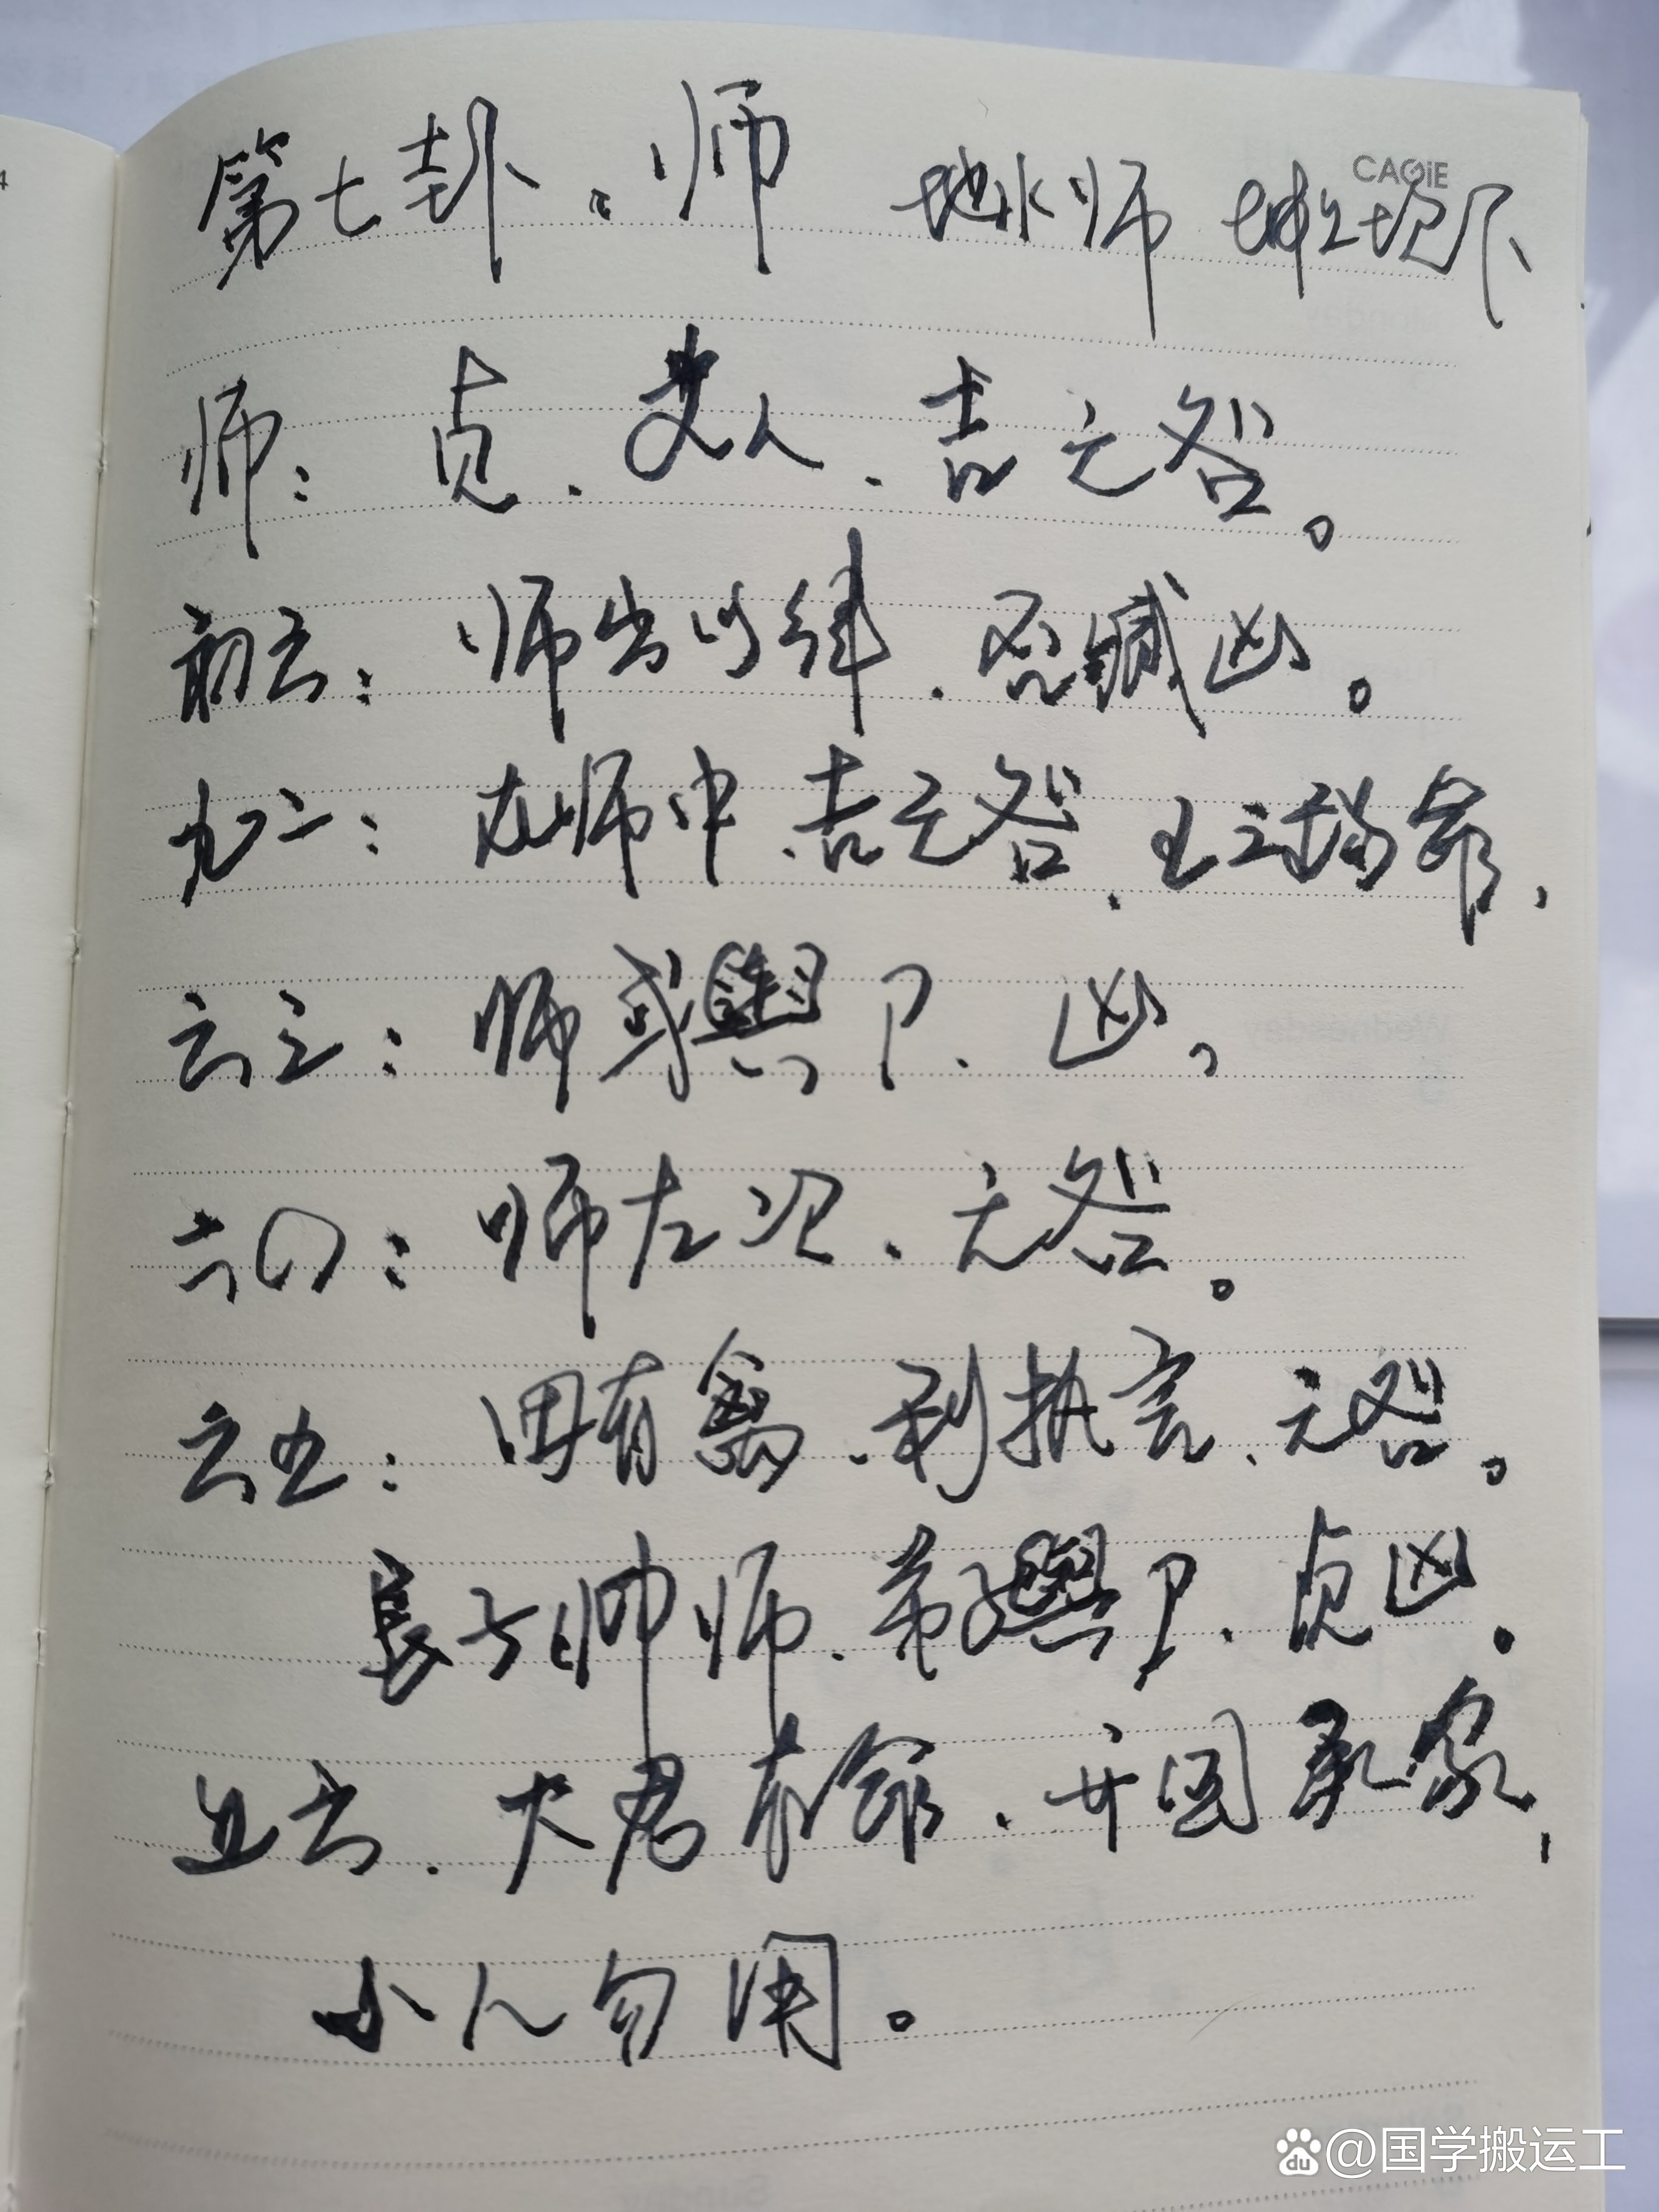 CAGiE
第七卦、师 地水师 坤上坎下
师：贞、丈人、吉无咎。
初六：师出以律、否臧凶。
九二：在师中、吉无咎、王三锡命，
六三：师或舆尸、凶，
六四：师左次、无咎。
六五：田有禽、利执言、无咎。
长子帅师、弟子舆尸、贞凶.
上六、大君有命、开国承家，
小人勿用。
du @国学搬运工